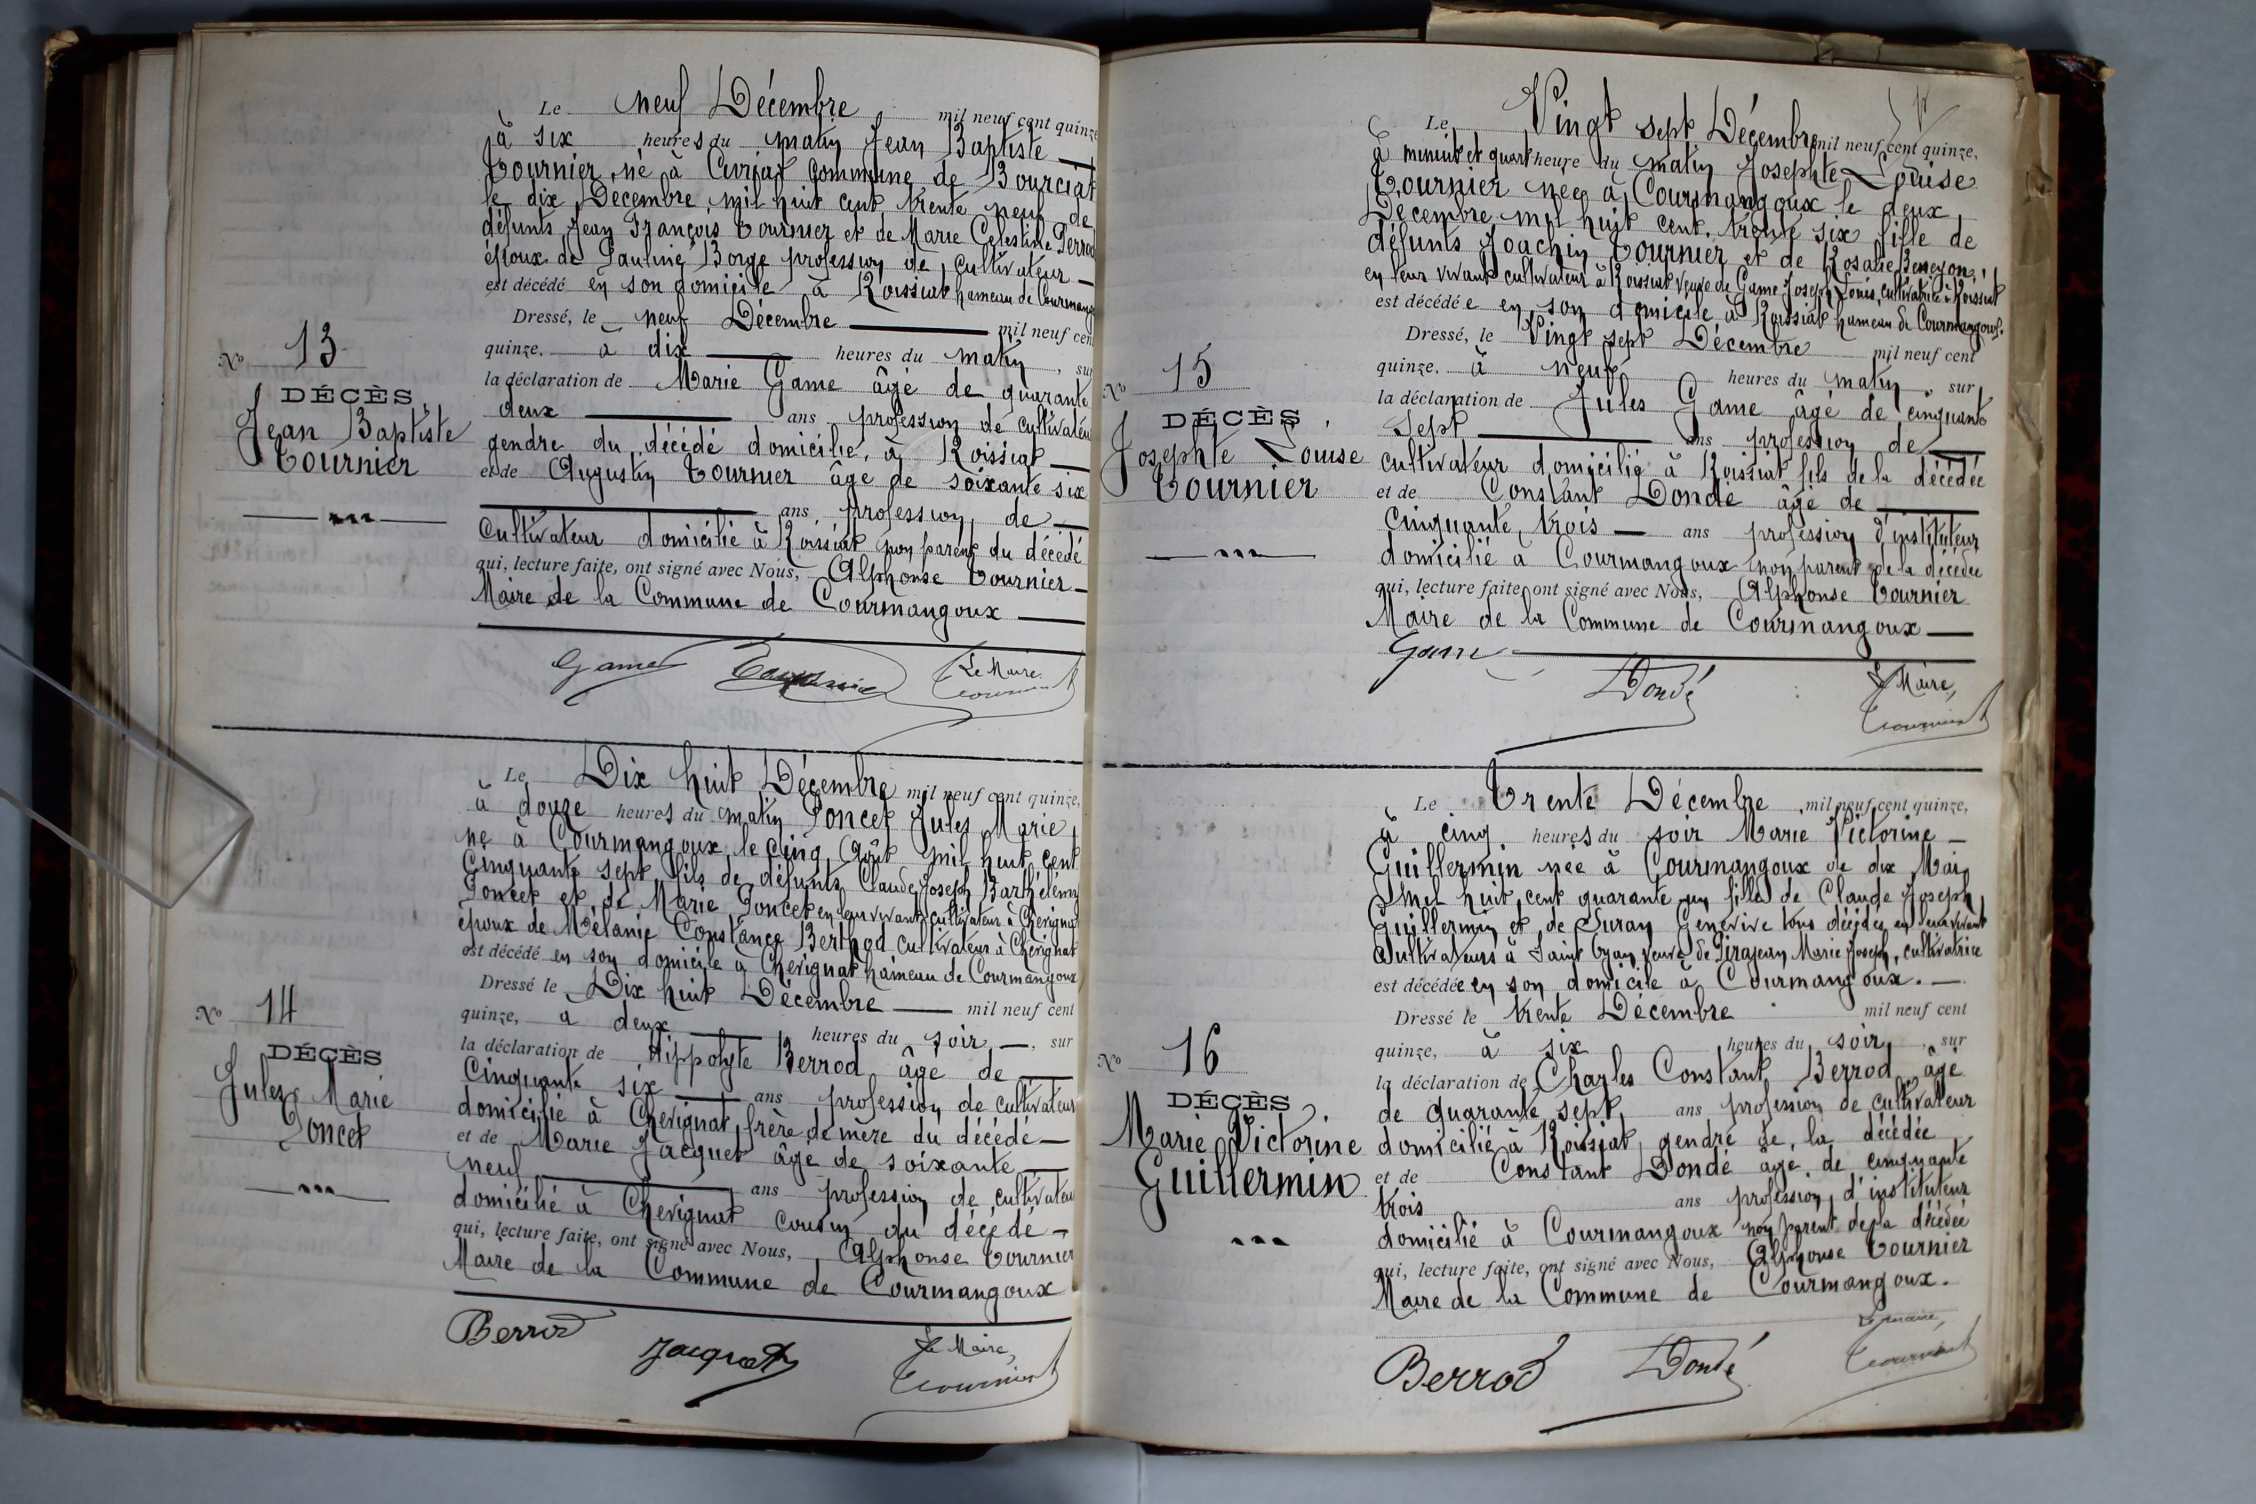 Le neuf Décembre mil neuf cent quinze
à six heures du matin Jean Baptiste
Tournier, né à Curciat commune de Bourciat
le dix Décembre mil huit cent trente neuf de
défunts Jean François Tournier et de Marie Célestine Perrod
époux de Pauline Borge profession de cultivateur
est décédé en son domicile à Roissiat hameau de Courmangoux
Dressé, le neuf Décembre mil neuf cent
N° 13
quinze. à dix heures du matin, sur
DÉCÈS
la déclaration de Marie Game âgé de quarante
Jean Baptiste
deux ans profession de cultivateur
Tournier
gendre du décédé domicilié à Roissiat
et de Augustin Tournier âgé de soixante six
ans profession de
cultivateur domicilié à Roissiat non parent du décédé
qui, lecture faite, ont signé avec Nous, Alphonse Tournier
Maire de la Commune de Courmangoux
Game Tournier Le Maire
Tournier
Le Dix huit Décembre mil neuf cent quinze,
à douze heures du matin Poncet Jules Marie
né à Courmangoux le cinq Août mil huit cent
cinquante sept fils de défunts Claude Joseph Barthélémy
Poncet et de Marie Poncet en leur vivant cultivateur à Chevignat
époux de Mélanie Constance Berthod cultivateur à Chevignat
est décédé en son domicile à Chevignat hameau de Courmangoux
Dressé le Dix huit Décembre mil neuf cent
N° 14
quinze, à deux heures du soir, sur
DÉCÈS
la déclaration de Hippolyte Berrod âgé de
Jules Marie
cinquante six ans profession de cultivateur
Poncet
domicilié à Chevignat frère de mère du décédé
et de Marie Jacquet âgé de soixante
neuf ans profession de cultivateur
domicilié à Chevignat cousin du décédé
qui, lecture faite, ont signé avec Nous, Alphonse Tournier
Maire de la Commune de Courmangoux
Berrod Jacquet Le Maire,
Tournier
Le Vingt sept Décembre mil neuf cent quinze,
à minuit et quart heure du matin Josephte Louise
Tournier née à Courmangoux le deux
Décembre mil huit cent trente six fille de
défunts Joachin Tournier et de Rosalie
en leur vivant cultivateur à Roissiat veuve de Game Joseph Louis, cultivatrice à Roissiat
est décédée en son domicile à Roissiat hameau de Courmangoux.
Dressé, le Vingt sept Décembre mil neuf cent
N° 15
quinze. à neuf heures du matin, sur
DÉCÈS
la déclaration de Jules Game âgé de cinquante
Josephte Louise
sept ans profession de
Tournier
cultivateur domicilié à Roissiat fils de la décédée
et de Constant Dondé âgé de
cinquante trois ans profession d'instituteur
domicilié à Courmangoux non parent de la décédée
qui, lecture faite, ont signé avec Nous, Alphonse Tournier
Maire de la Commune de Courmangoux
Game Dondé Le Maire,
Tournier
Le Trente Décembre mil neuf cent quinze,
à cinq heures du soir Marie Victorine
Guillermin née à Courmangoux le dix Mai
mil huit cent quarante un fille de Claude Joseph
Guillermin et de Suran Genevive tous décédés en leur vivant
cultivateurs à Saint veuve de Pirajean Marie Joseph, cultivatrice
est décédée en son domicile à Courmangoux.
Dressé le trente Décembre mil neuf cent
N° 16
quinze, à six heures du soir, sur
DÉCÈS
la déclaration de Charles Constant Berrod âgé
Marie Victorine
de quarante sept ans profession de cultivateur
Guillermin
domicilié à Roissiat, gendre de la décédée
et de Constant Dondé âgé de cinquante
trois ans profession d'instituteur
domicilié à Courmangoux non parent de la décédée
qui, lecture faite, ont signé avec Nous, Alphonse Tournier
Maire de la Commune de Courmangoux.
Berrod Dondé Le maire,
Tournier